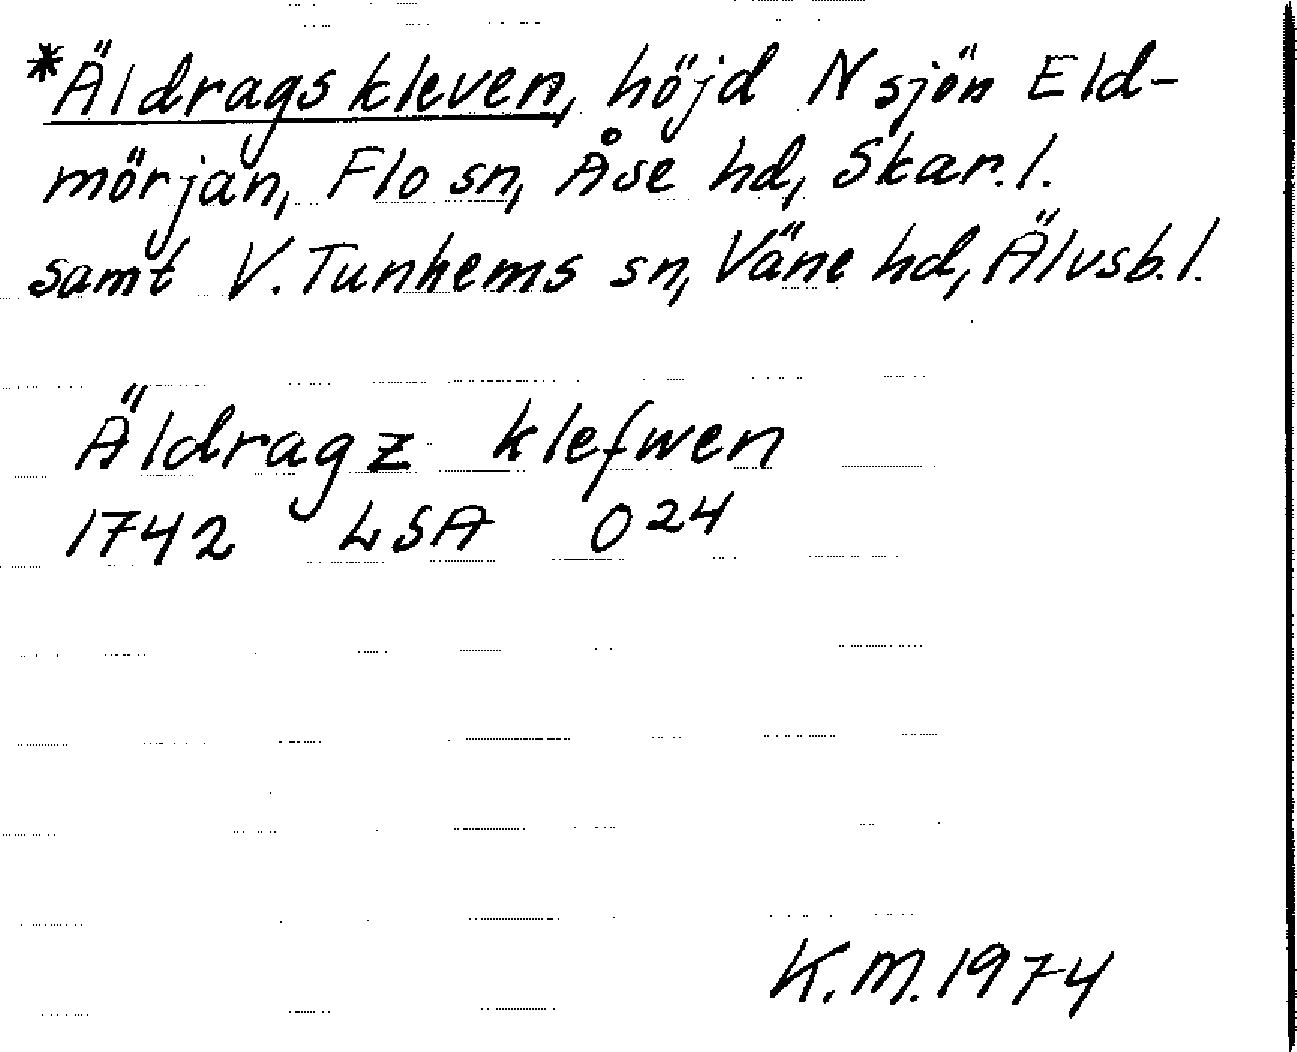 *Äldragskleven, höjd N sjön Eld-
mörjan, Flo sn, Åse hd, Skar. l.
samt V. Tunhems sn, Väne hd, Älvsb. l.
Äldragz klefwen
1742 LSA O24
K.M. 1974